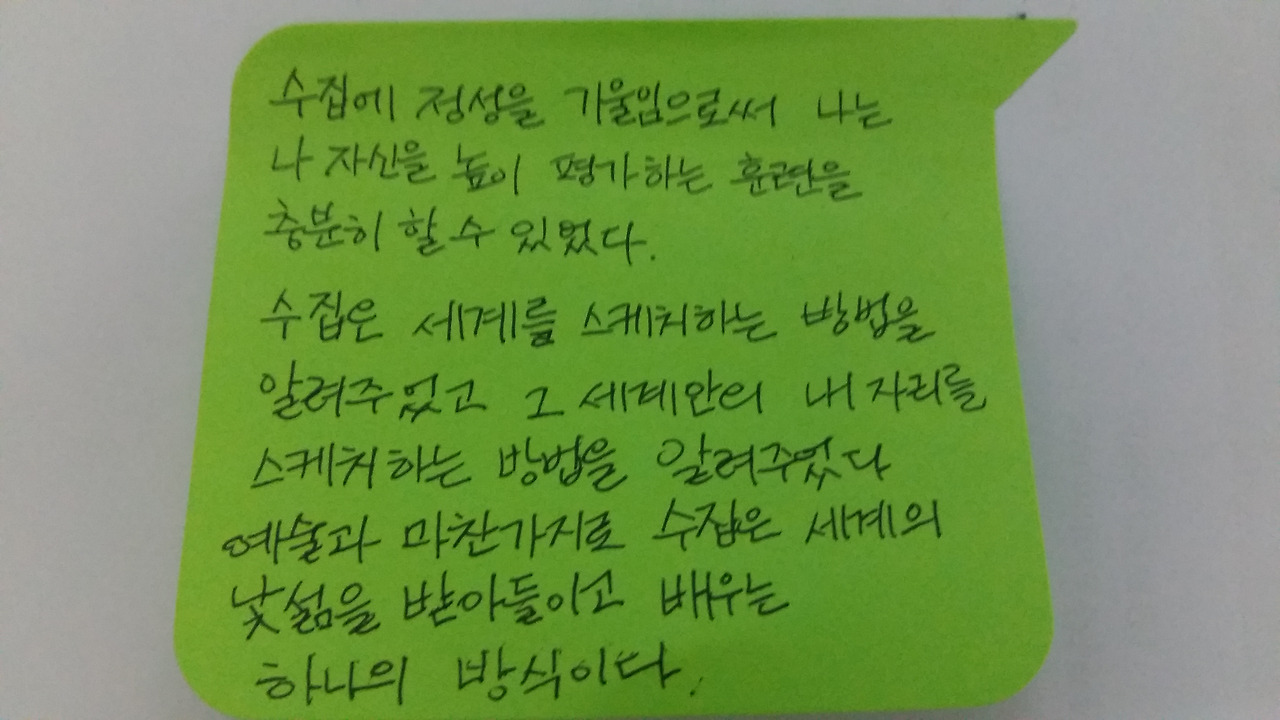 수집에 정성을 기울임으로써 나는
나 자신을 높이 평가하는 훈련을
충분히 할 수 있었다.
수집은 세계를 스케치하는 방법을
알려주었고 그 세계안의 내 자리를
스케치하는 방법을 알려주었다
예술과 마찬가지로 수집은 세계의
낯섦을 받아들이고 배우는
하나의 방식이다.